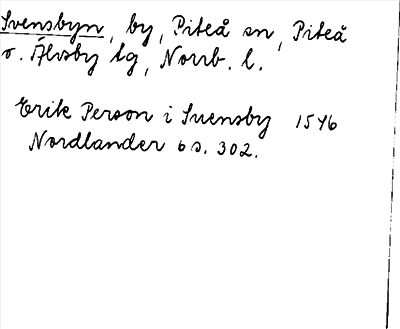 Svensbyn, by, Piteå sn, Piteå
o. Älvsby tg, Norrb. l.
Erik Person i Suensby 1546
Nordlander 6 s. 302.